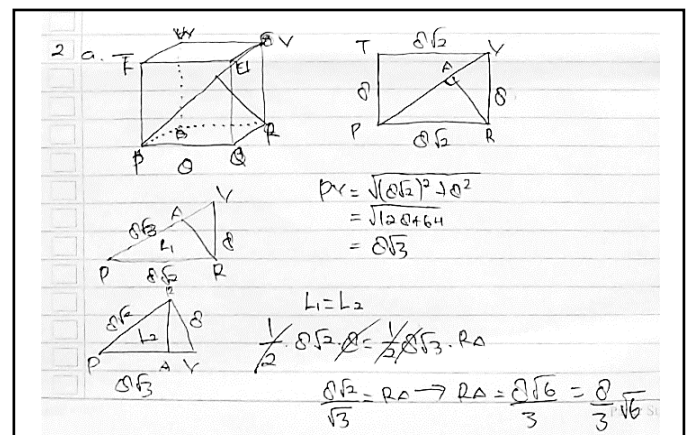 2 a.
W V
T U
S R
P 8 Q
T 8√2 V
8 A 8
P 8√2 R
PV = √(8√2)² + 8²
= √128+64
= 8√3
V
8√3 A
L₁ 8
P 8√2 R
R
8√2 8
L₂
P A V
8√3
L₁ = L₂
1/2 · 8√2 · 8 = 1/2 8√3 · RA
8√2/√3 = RA → RA = 8√6/3 = 8/3 √6